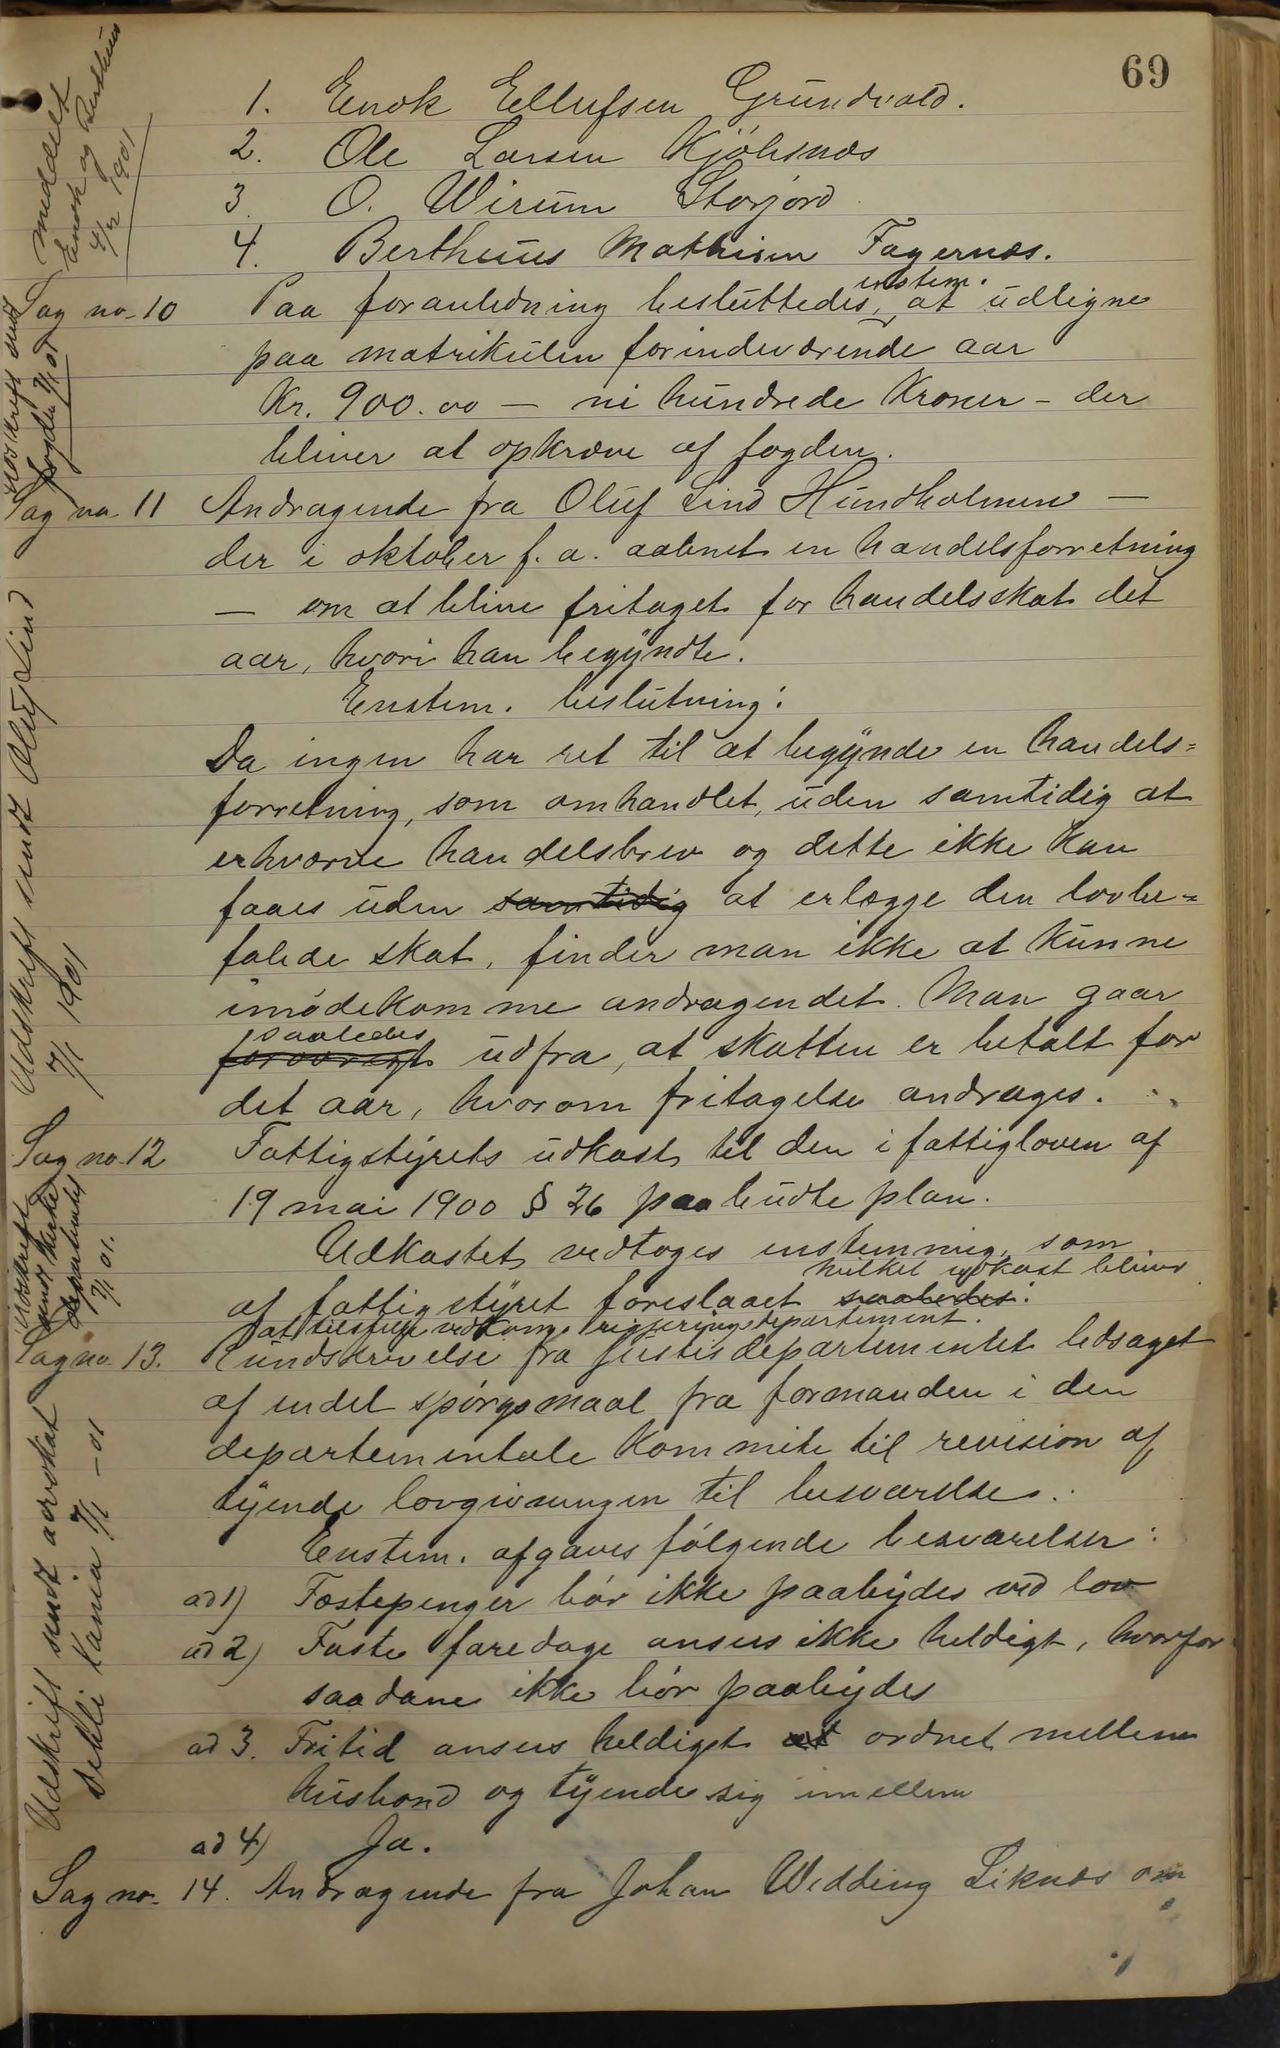 69
1. Enok Ellefsen Grundvold.
2. Ole Larsen Kjölsnæs
3. O. Wirum Storjord
4. Berthæus Mathisen Fagernæs.
meddelt
Enok og Berthæus
4/2 1901
Sag no. 10 Paa foranledning besluttedes enstem. at udligne
paa matrikulen for indeværende aar
Kr. 900.00 — ni hundrede Kroner – der
bliver at opkræve af fogden.
udskrift sendt
fogden 7/1 01
Sag no 11 Andragende fra Oluf Lind Hundholmen —
der i oktober f. a. aabnet en handelsforretning
— om at blive fritaget for handelsskat det
aar, hvori han begyndte.
Enstem. beslutning:
Da ingen har ret til at begynde en handels=
forretning, som omhandlet, uden samtidig at
erhverve handelsbrev og dette ikke kan
faaes uden samtidig at erlægge den lovbe=
falede skat, finder man ikke at kunne
imødekomme andragendet. Man gaar
saaledes
forøvrigt udfra, at skatten er betalt for
det aar, hvorom fritagelse andrages.
Udskrift sendt Oluf Lind
7/1 1901
Sag no. 12 Fattigstyrets udkast til den i fattigloven af
19 mai 1900 § 26 paabudte plan.
Udkastet vedtoges enstemmig, som
hvilket udkast bliver
af fattigstyret foreslaaet saaledes:
at tilstille vedkom. regjeringsdepartement.
udskrift
sendt kirke
departementet
7/1 01.
Sag no. 13. Rundskrivelse fra Justisdepartementet ledsaget
af endel spørgsmaal fra formanden i den
departementale Kommite til revision af
tyende lovgivningen til besvarelse.
Enstem. afgaves følgende besvarelser:
ad 1) Fæstepenger bør ikke paabydes ved lov
ad 2) Faste faredage ansees ikke heldigt, hvorfor
saadane ikke bør paabydes
ad 3. Fritid ansees heldigst at ordnet mellem
husbond og tyende sig imellem
ad 4) Ja.
Udskrift sendt advokat
Dehli Kania 7/1 – 01
Sag no. 14. Andragende fra Johan Wedding Liknæs om